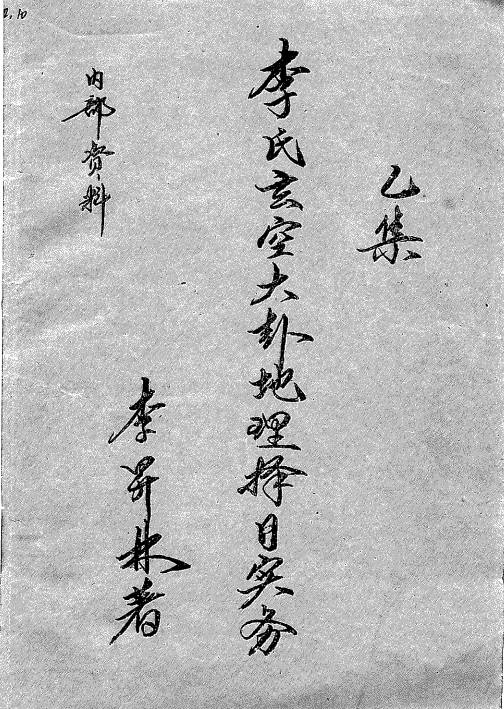 乙集
李氏玄空大卦地理择日实务
李昇林著
内部资料
2.10